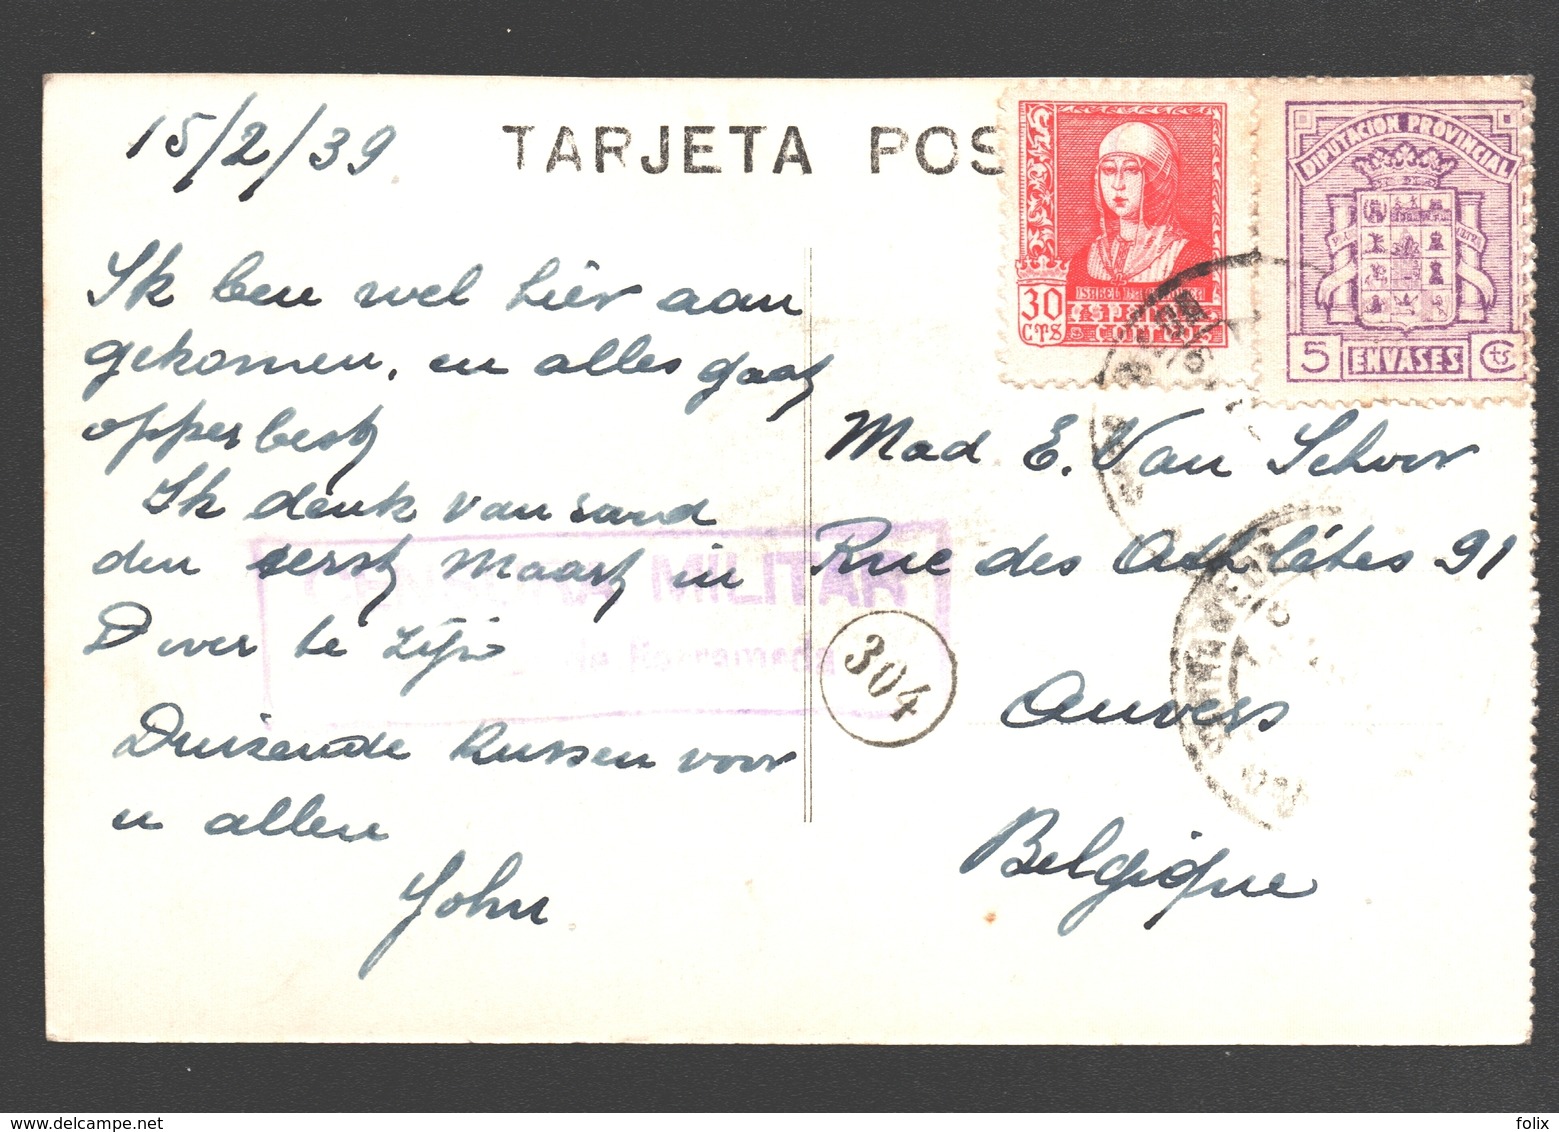 15/2/39
TARJETA POS
Ik ben wel hier aan
gekomen, en alles gaat
opperbest
Ik denk van rond
den eerst Maart in
Dover te zijn
Duizende kussen voor
u allen
John
30
CTS
ISABEL
CORREOS
DIPUTACION PROVINCIAL
5 ENVASES Cts
Mad E. Van Schoor
Rue des Athlétes 91
Anvers
Belgique
CENSURA MILITAR
de Barrameda
304